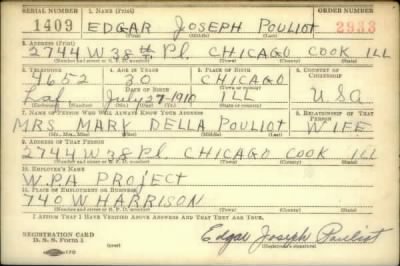 SERIAL NUMBER 1. NAME (Print) ORDER NUMBER
1409 EDGAR JOSEPH POULIOT 2933
(First) (Middle) (Last)
2. ADDRESS (Print)
2744 W 38th Pl. CHICAGO COOK ILL
(Number and street or R. F. D. number) (Town) (County) (State)
3. TELEPHONE 4. AGE IN YEARS 5. PLACE OF BIRTH 6. COUNTRY OF CITIZENSHIP
4652 30 CHICAGO
DATE OF BIRTH
Laf July 27 1910 ILL USA
(Exchange) (Number) (Mo.) (Day) (Yr.) (State or country)
7. NAME OF PERSON WHO WILL ALWAYS KNOW YOUR ADDRESS 8. RELATIONSHIP OF THAT PERSON
MRS MARY DELLA POULIOT WIFE
(Mr., Mrs., Miss) (First) (Middle) (Last)
9. ADDRESS OF THAT PERSON
2744 W 38 Pl. CHICAGO COOK ILL
(Number and street or R. F. D. number) (Town) (County) (State)
10. EMPLOYER'S NAME
W.P.A PROJECT
11. PLACE OF EMPLOYMENT OR BUSINESS
740 W HARRISON
(Number and street or R. F. D. number) (Town) (County) (State)
I AFFIRM THAT I HAVE VERIFIED ABOVE ANSWERS AND THAT THEY ARE TRUE.
REGISTRATION CARD
D. S. S. Form 1 (over) Edgar Joseph Pouliot
(Registrant's signature)